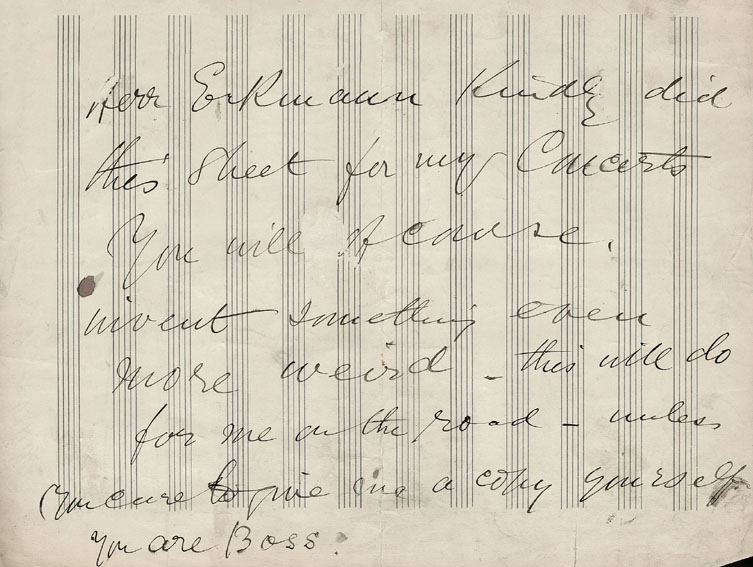 Herr Erkmann Kindly did
this Sheet for my Concerts
You will of course.
invent something even
more weird - this will do
for me on the road - unless
you care to give me a copy yourself
You are Boss.